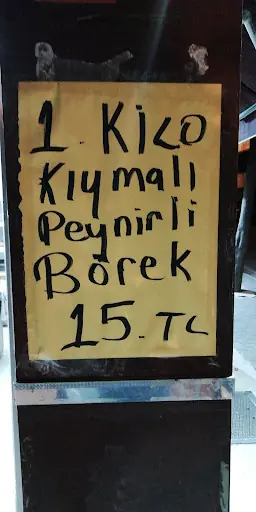 1 KiLO
Kıymalı
Peynirli
Börek
15. TL